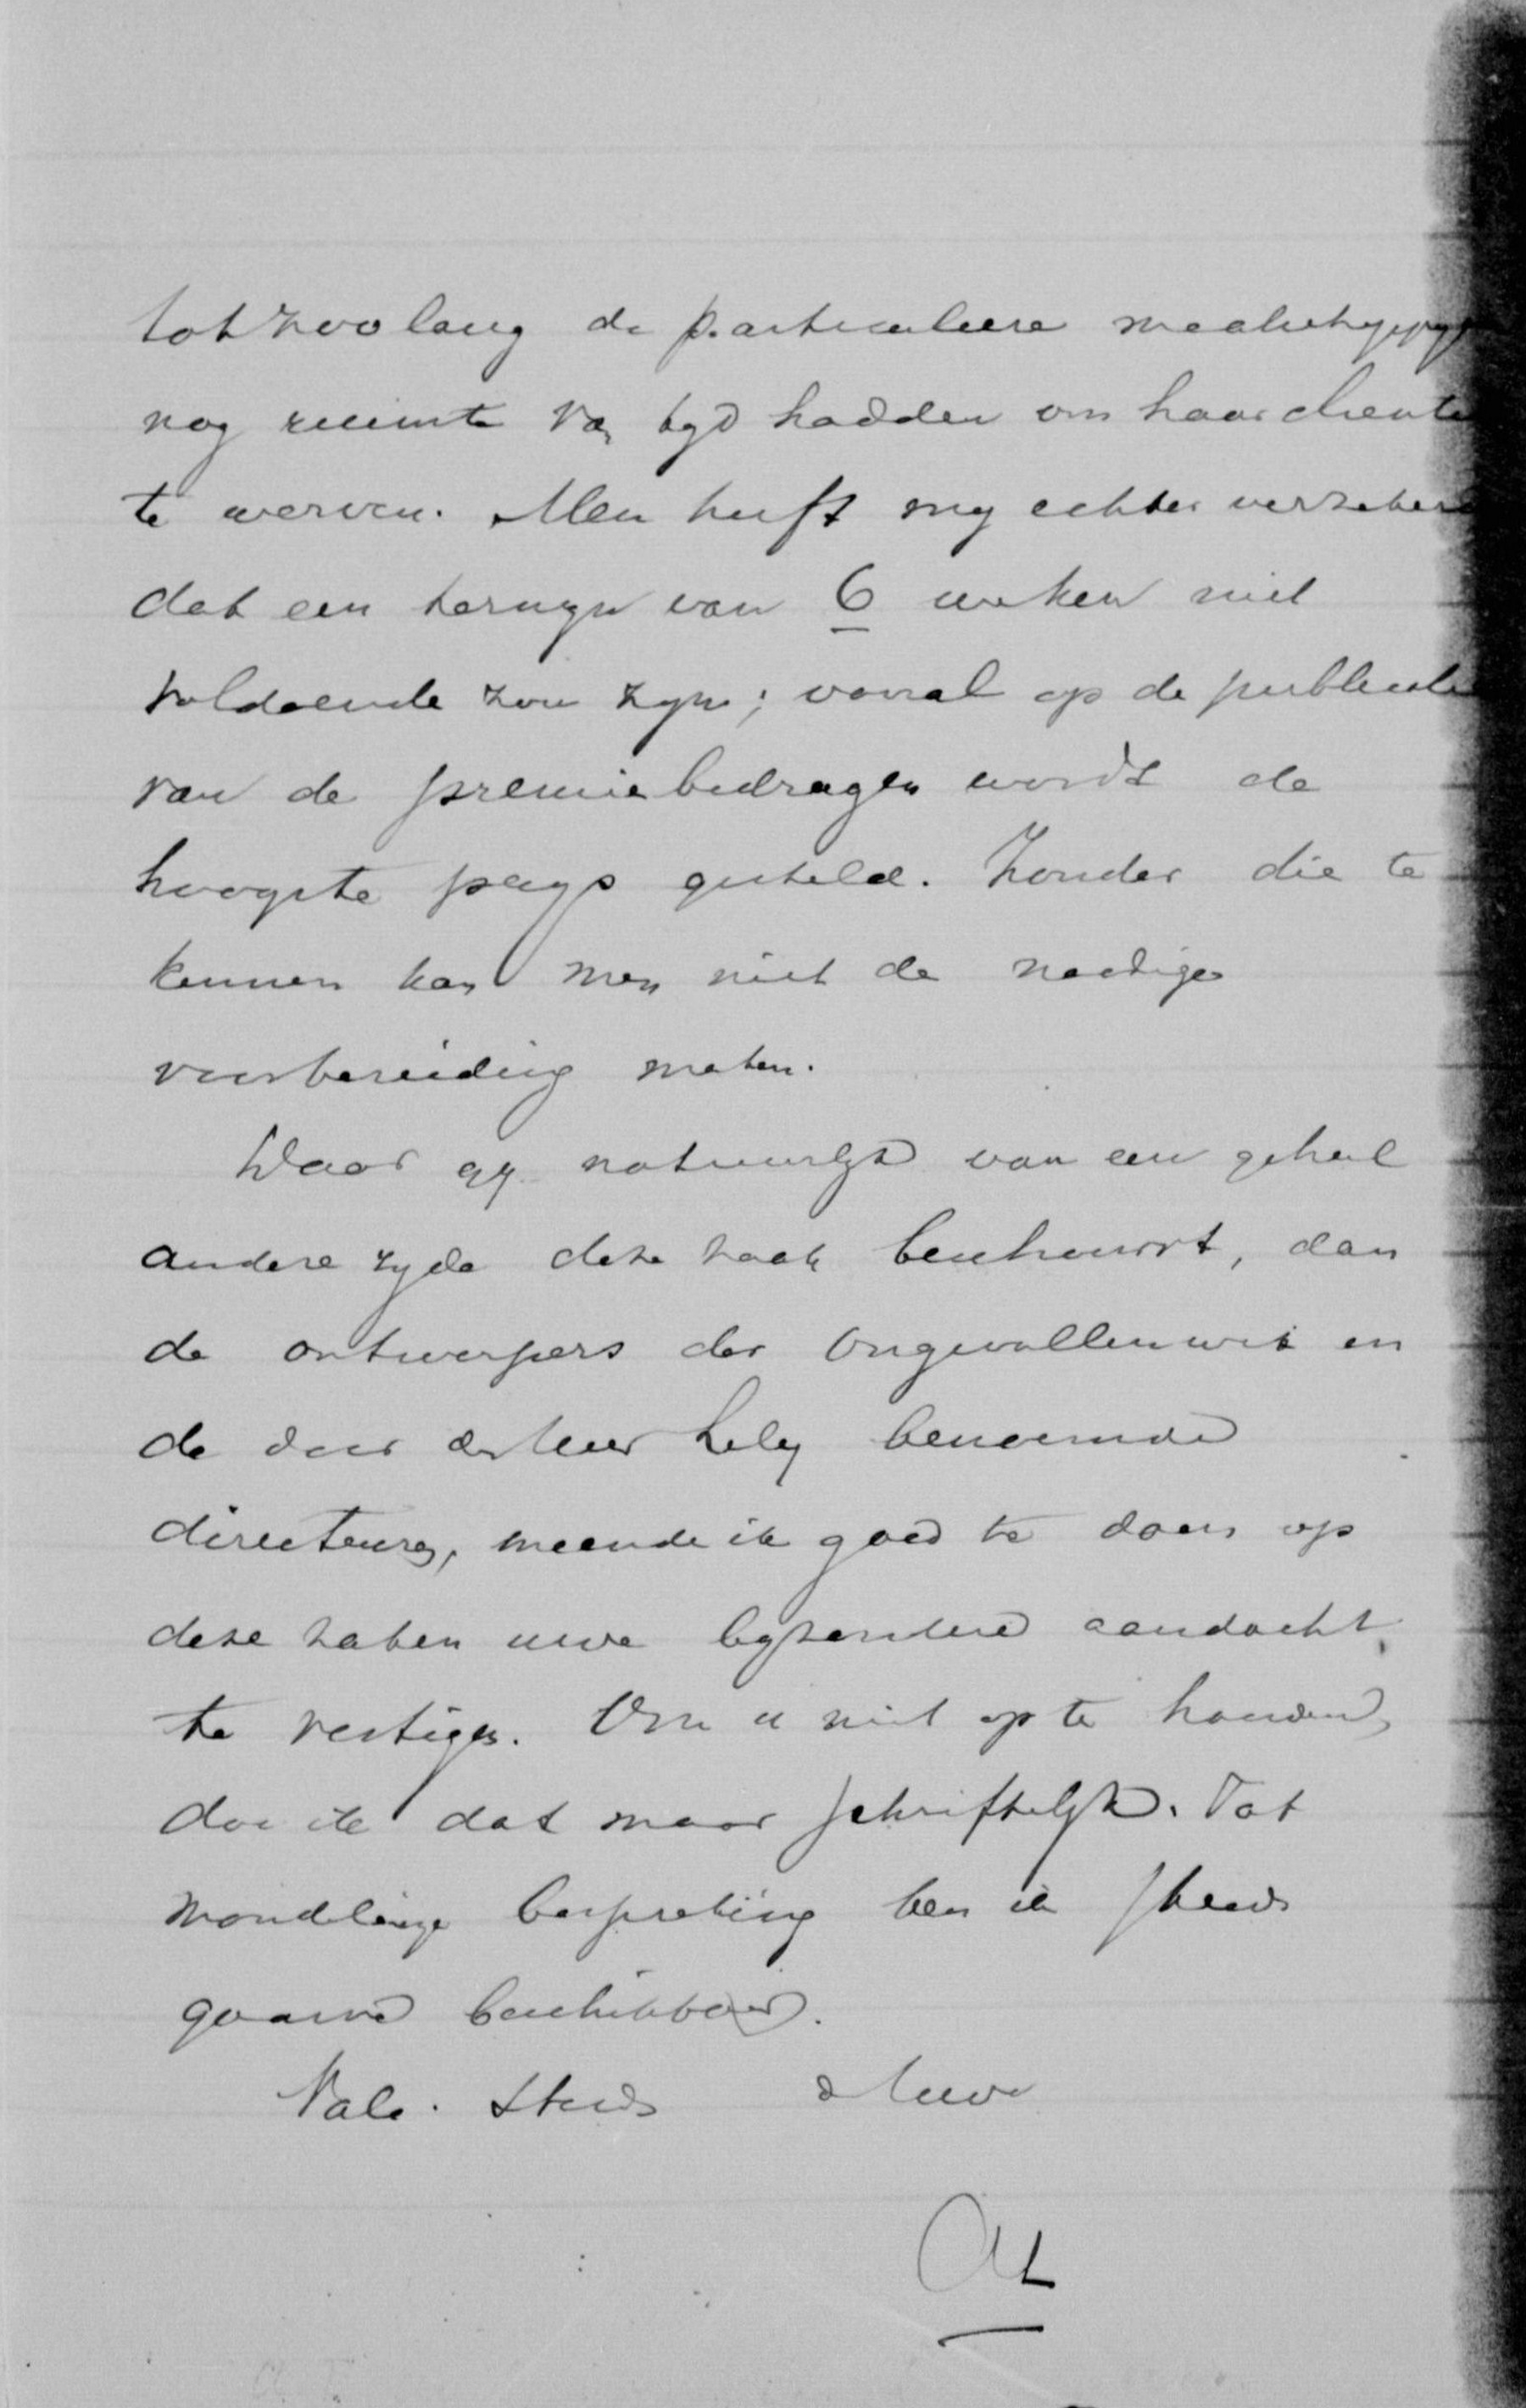 tot zoolang de particuliere maatschappij
nog ruimte van tyd hadden om haar cliente
te werven. Men heeft my echter verzekerd
dat een termyn van 6 weken niet
voldoende zou zyn; vooral op de publicatie
van de premiebedragen wordt de
hoogste prys gesteld. Zonder die te
kennen kan men niet de noodige
voorbereiding maken.
Waar gy natuurlyk van een geheel
andere zyde deze zaak beschouwt, dan
de ontwerpers der Ongevallenwet en
de door den heer Lely benoemde
directeuren, meende ik goed te doen op
deze zaken uwe byzondere aandacht
te vestigen. Om u niet op te houden,
doe ik dat maar schriftelyk. Tot
mondelinge bespreking ben ik steeds
gaarne beschikbaar.
Vale. Steeds de Uwe